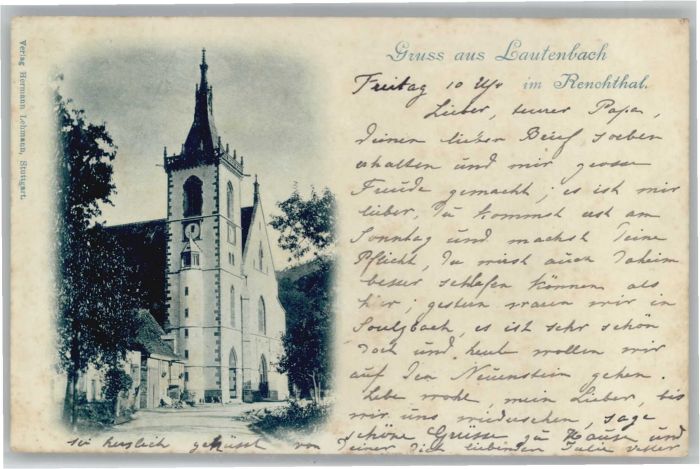 Verlag Hermann Lehmann, Stuttgart.
Gruss aus Lautenbach
im Renchthal.
Freitag 10 Uhr
Lieber, teurer Papa,
deinen lieben Brief soeben
erhalten und mir grosse
Freude gemacht; es ist mir
lieber, du kommst erst am
Sonntag und machst deine
Pflicht, du wirst auch daheim
besser schlafen können als
hier; gestern waren wir in
Soulzbach, es ist sehr schön
dort und heute wollen wir
auf den Neuenstein gehen.
Lebe wohl, mein Lieber, bis
wir uns wiedersehen, sage
schöne Grüsse zu Hause und
sei herzlich geküsst von deiner dich liebenden Julie